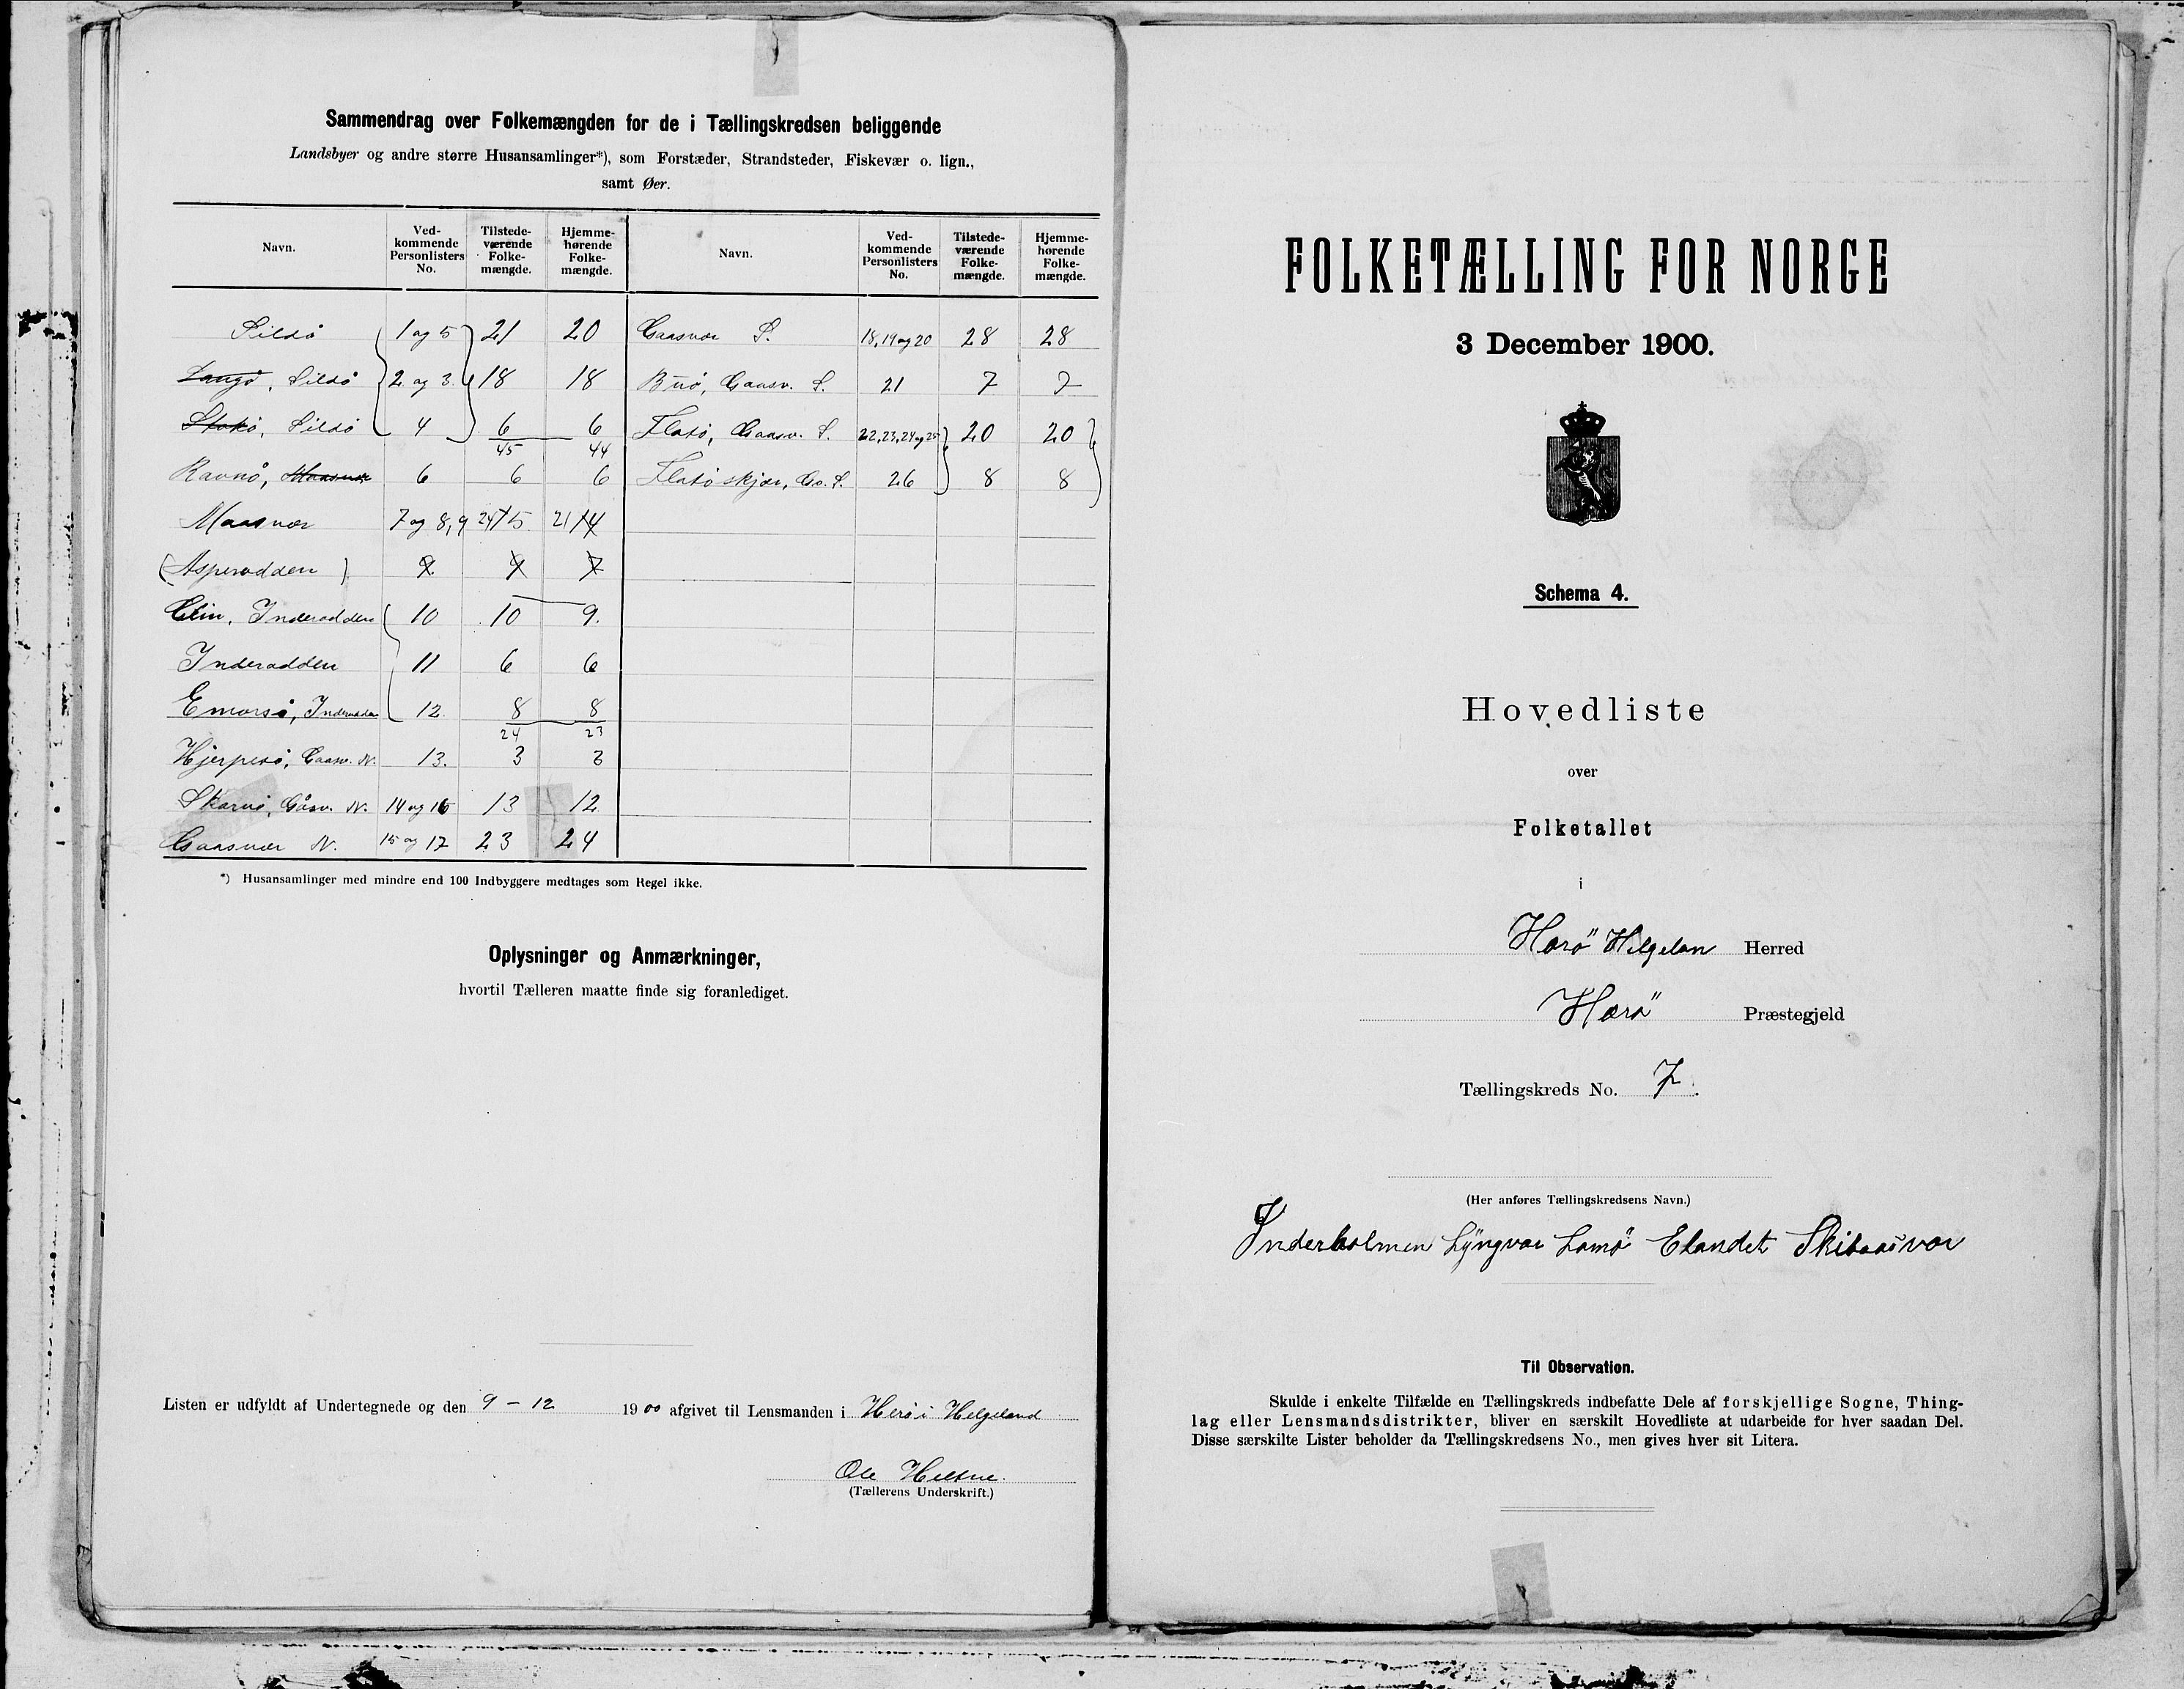 Sammendrag over Folkemængden for de i Tællingskredsen beliggende
Landsbyer og andre større Husansamlinger*), som Forstæder, Strandsteder, Fiskevær o. lign.,
samt Øer.
Navn. Ved-kommende Personlisters No. Tilstede-værende Folke-mængde. Hjemme-hørende Folke-mængde. Navn. Ved-kommende Personlisters No. Tilstede-værende Folke-mængde. Hjemme-hørende Folke-mængde.
Sildö 1 og 5 21 20 Gaasvær S. 18, 19 og 20 28 28
Langö, Sildö 2 og 3 18 18 Buö, Gaasv. S. 21 7 7
Stokö, Sildö 4 6 6 Flatö, Gaasv. S. 22, 23, 24 og 25 20 20
45 44
Ravnö, Maasvær 6 6 6 Flatöskjær, Ga. S. 26 8 8
Maasvær 7 og 8, 9 24 15 21 14
(Asperadden) 9 9 7
Inderadden 10 10 9.
Inderadden 11 6 6
Emarsö, Inderadden 12. 8 8
24 23
Hjerpesö, Gaasv. N. 13. 3 3
Skarvö, Gåsv. N. 14 og 16 13 12
Gaasvær N. 15 og 17 23 24
*) Husansamlinger med mindre end 100 Indbyggere medtages som Regel ikke.
Oplysninger og Anmærkninger,
hvortil Tælleren maatte finde sig foranlediget.
Listen er udfyldt af Undertegnede og den 9 – 12 1900 afgivet til Lensmanden i Herö i Helgeland
Ole
(Tællerens Underskrift.)
FOLKETÆLLING FOR NORGE
3 December 1900.
Schema 4.
Hovedliste
over
Folketallet
i
Herö Helgelan Herred
Herö Præstegjeld
Tællingskreds No. 7.
(Her anføres Tællingskredsens Navn.)
Inderholmen Lyngvær Lamö Elandet Skibaasvær
Til Observation.
Skulde i enkelte Tilfælde en Tællingskreds indbefatte Dele af forskjellige Sogne, Thing-
lag eller Lensmandsdistrikter, bliver en særskilt Hovedliste at udarbeide for hver saadan Del.
Disse særskilte Lister beholder da Tællingskredsens No., men gives hver sit Litera.